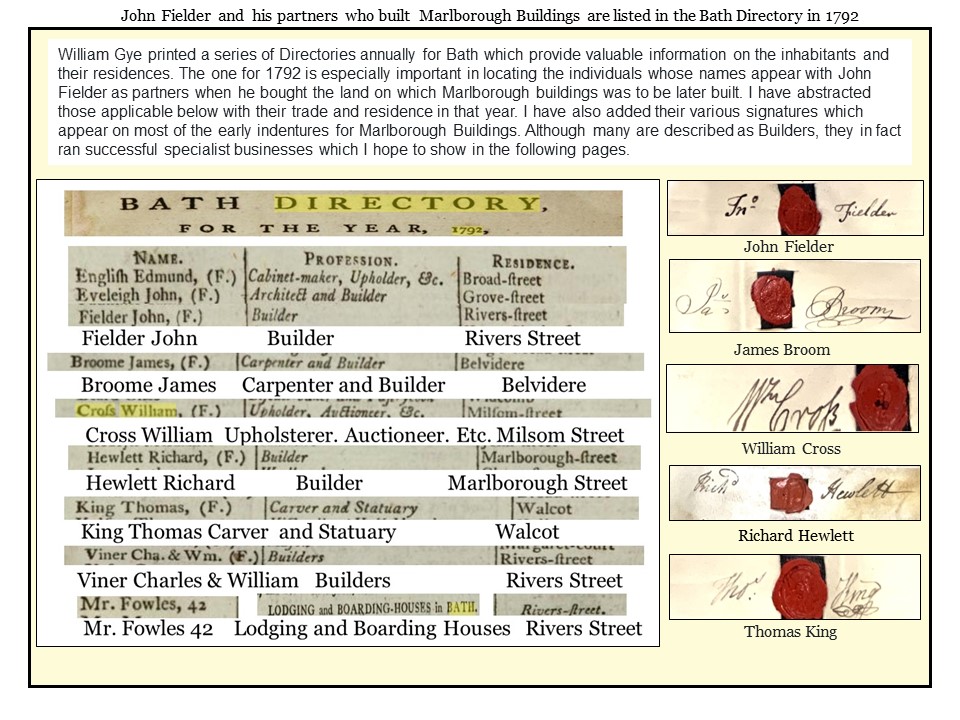 John Fielder and his partners who built Marlborough Buildings are listed in the Bath Directory in 1792
William Gye printed a series of Directories annually for Bath which provide valuable information on the inhabitants and
their residences. The one for 1792 is especially important in locating the individuals whose names appear with John
Fielder as partners when he bought the land on which Marlborough buildings was to be later built. I have abstracted
those applicable below with their trade and residence in that year. I have also added their various signatures which
appear on most of the early indentures for Marlborough Buildings. Although many are described as Builders, they in fact
ran successful specialist businesses which I hope to show in the following pages.
BATH DIRECTORY,
FOR THE YEAR, 1792,
NAME. PROFESSION. RESIDENCE.
Engliſh Edmund, (F.) Cabinet-maker, Upholder, &c. Broad-ſtreet
Eveleigh John, (F.) Architect and Builder Grove-ſtreet
Fielder John, (F.) Builder Rivers-ſtreet
Fielder John Builder Rivers Street
Broome James, (F.) Carpenter and Builder Belvidere
Broome James Carpenter and Builder Belvidere
Croſs William, (F.) Upholder, Auctioneer, &c. Milſom-ſtreet
Cross William Upholsterer. Auctioneer. Etc. Milsom Street
Hewlett Richard, (F.) Builder Marlborough-ſtreet
Hewlett Richard Builder Marlborough Street
King Thomas, (F.) Carver and Statuary Walcot
King Thomas Carver and Statuary Walcot
Margaret-court
Viner Cha. & Wm. (F.) Builders Rivers-ſtreet
Viner Charles & William Builders Rivers Street
Mr. Fowles, 42 LODGING and BOARDING-HOUSES in BATH. Rivers-ſtreet.
Mr. Fowles 42 Lodging and Boarding Houses Rivers Street
Jnº Fielder
John Fielder
Jas Broom
James Broom
Wm Croſs
William Cross
Richd Hewlett
Richard Hewlett
Thos. King
Thomas King